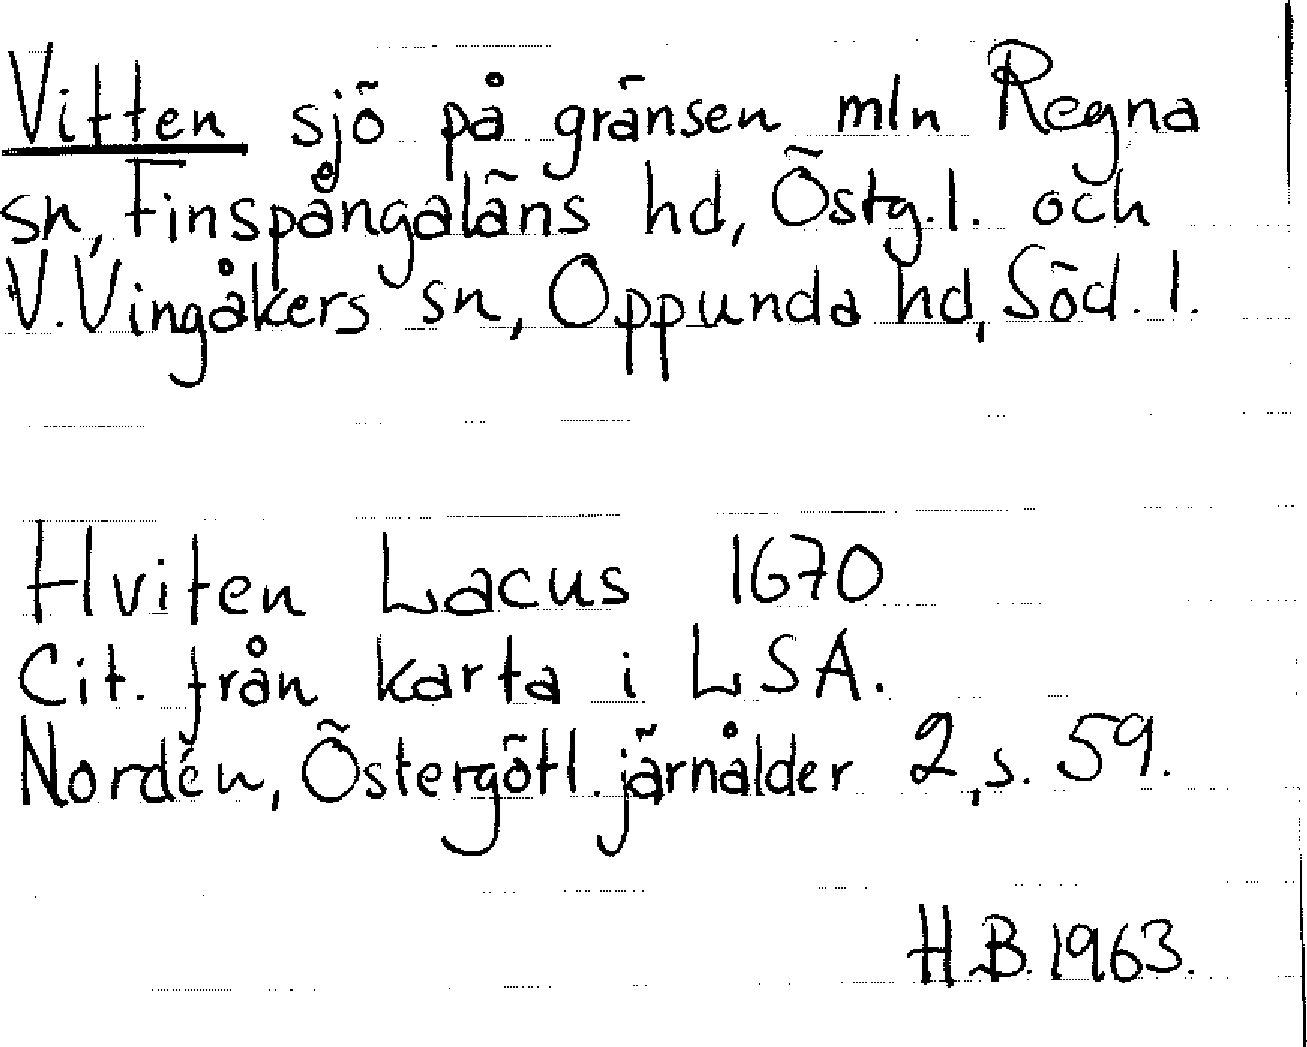 Vitten sjö på gränsen mln Regna
sn, Finspångaläns hd, Östg.l. och
V. Vingåkers sn, Oppunda hd, Söd. l.
Hviten Lacus 1670
Cit. från karta i LSA.
Nordén, Östergötl. järnålder 2, s. 59.
H.B. 1963.